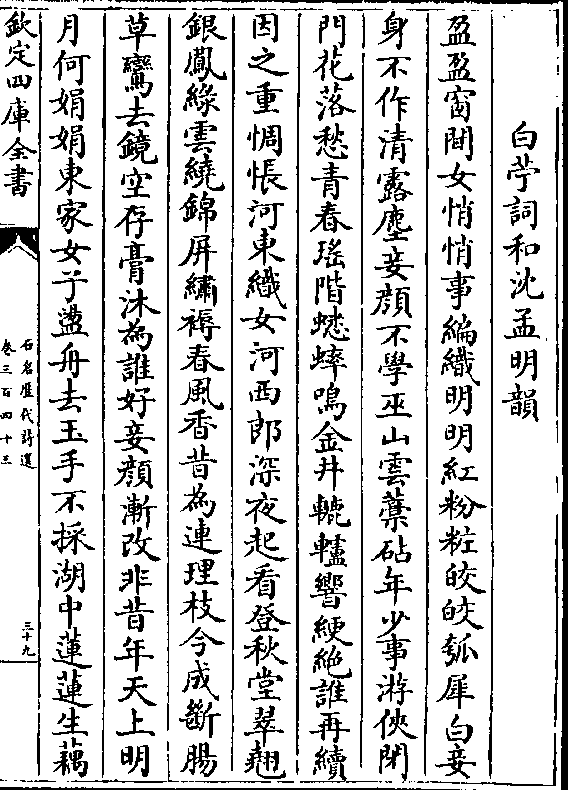 白苧詞和沈孟明韻
盈盈窗間女悄悄事編織明明紅粉粧皎皎瓠犀白妾
身不作清露塵妾顔不學巫山雲藁砧年少事游俠閉
門花落愁青春瑶階蟋蟀鳴金井轆轤響綆絶誰再續
因之重惆悵河東織女河西郎深夜起看登秋堂翠翹
銀鳳綠雲繞錦屏繡褥春風香昔為連理枝今成斷腸
草鸞去鏡空存膏沐為誰好妾顔漸改非昔年天上明
月何娟娟東家女子盪舟去玉手不採湖中蓮蓮生藕
欽定四庫全書
石倉歷代詩選
卷三百四十三
三十九